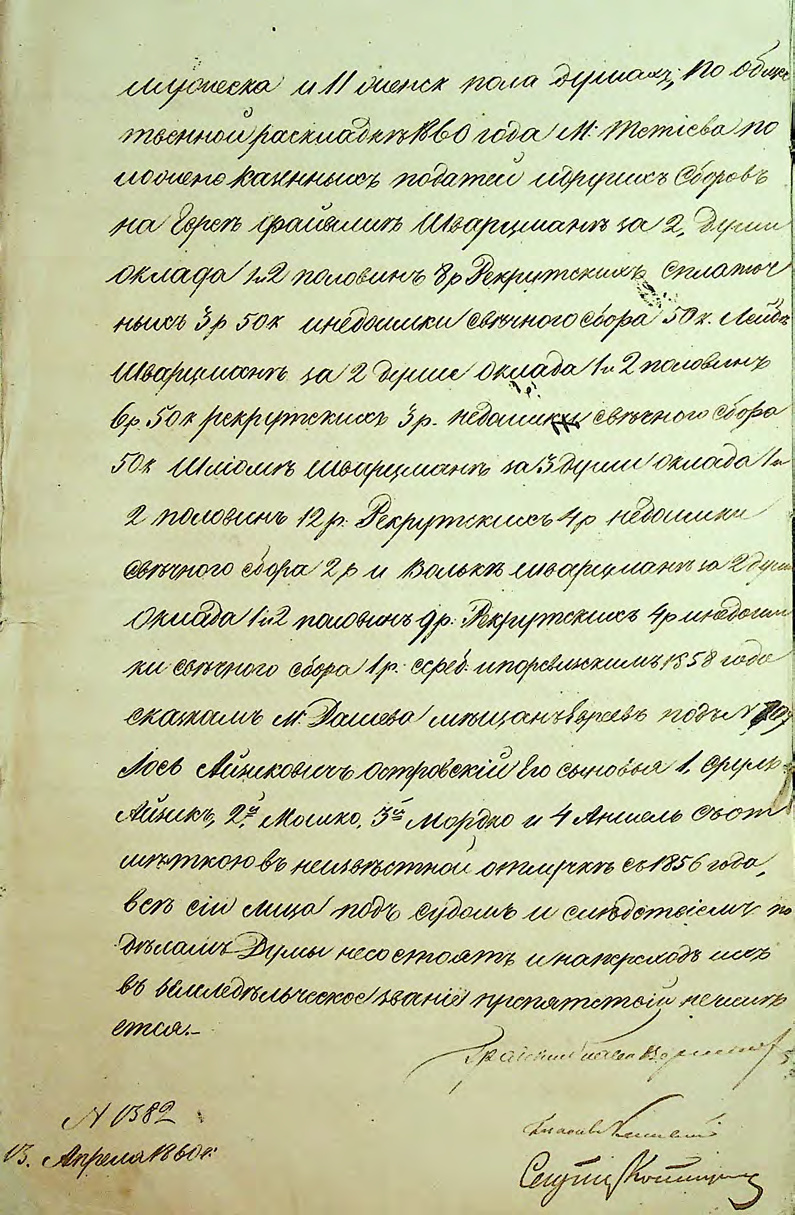 мужеска и 11 женск пола душах; По общес
твенной раскладкѣ 1860 года М: Тетіева по
ложено казенныхъ податей и другихъ сборовъ
на Евреѣ Файвишѣ Шварцманѣ за 2, души
оклада 1 и 2 половинъ 8 р Рекрутскихъ сплаточ
ныхъ 3 р 50 к и недоимки свѣчного сбора 50 к. Лейбѣ
Шварцманѣ за 2 души оклада 1 и 2 половинъ
6 р 50 к рекрутскихъ 3 р. недоимки свѣчного сбора
50 к Шліомѣ Шварцманѣ за 3 души оклада 1 и
2 половинъ 12 р. Рекрутскихъ 4 р недоимки
свѣчного сбора 2 р и Волькѣ Шварцманѣ за 2 души
оклада 1 и 2 половинъ 9 р. Рекрутскихъ 4 р и недоим
ки свѣчного сбора 1 р. сереб. и поревизскимъ 1858 года
сказкамъ М. Дашева мѣщанъ Евреевъ подъ N
Іось Айзиковичъ Островскій Его сыновья 1, Сруль
Айзикъ, 2й Мошко, 3й Мордко и 4 Аншель съ от
мѣткою въ неизвѣстной отлучкѣ съ 1856 года,
всѣ сіи лица подъ судомъ и слѣдствіемъ по
дѣламъ Думы несостоятъ и напереходъ ихъ
въ земледѣльческое званіе препятствій неимѣ
ется.-
N 1382
13. Апреля 1860 г.